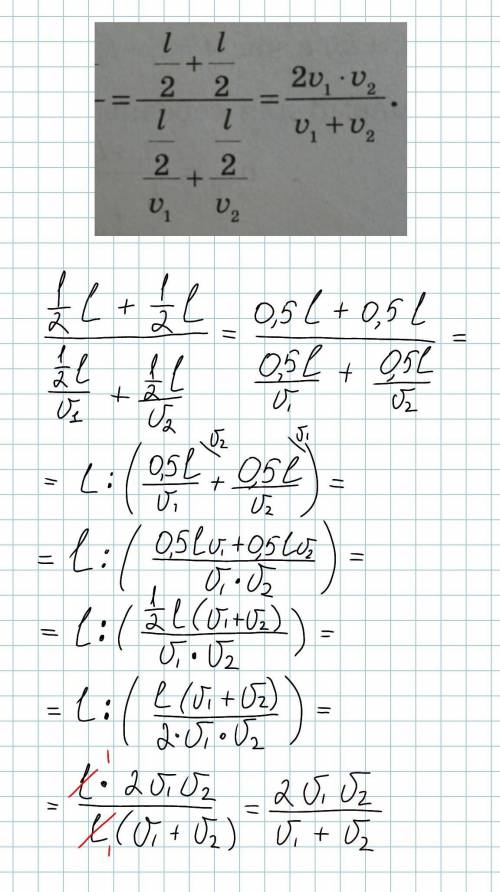 = (l/2 + l/2) / ((l/2)/v₁ + (l/2)/v₂) = 2v₁ · v₂ / (v₁ + v₂).
(1/2 l + 1/2 l) / ((1/2 l)/v₁ + (1/2 l)/v₂) = (0,5 l + 0,5 l) / (0,5l/v₁ + 0,5l/v₂) =
v₂ v₁
= l : (0,5l/v₁ + 0,5l/v₂) =
= l : ((0,5lv₁ + 0,5lv₂) / (v₁ · v₂)) =
= l : (1/2 l (v₁ + v₂) / (v₁ · v₂)) =
= l : (l (v₁ + v₂) / (2 · v₁ · v₂)) =
1
= l · 2v₁v₂ / (l (v₁ + v₂)) = 2v₁v₂ / (v₁ + v₂)
1